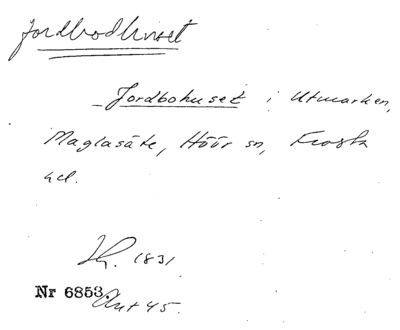 Jordbodhuset
Jordbohuset i Utmarken,
Maglasäte, Höör sn, Frosta
hd.
Hf. 1831
Nr 6853.
Ant 45.